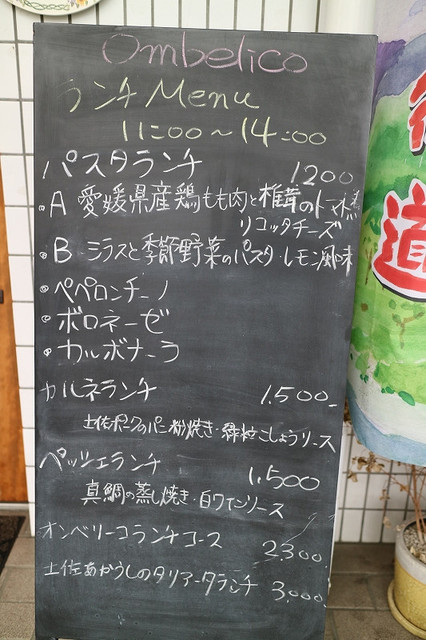 Ombelico
ランチ Menu
11:00～14:00
パスタランチ 1200
・A 愛媛県産鶏もも肉と椎茸のトマト煮
リコッタチーズ
・B シラスと季節野菜のパスタ・レモン風味
・ペペロンチーノ
・ボロネーゼ
・カルボナーラ
カルネランチ 1,500-
土佐ポークのパン粉焼き・緑粒こしょうソース
ペッシェランチ 1,500
真鯛の蒸し焼き・白ワインソース
オンベリーコランチコース 2,300
土佐あかうしのタリアータランチ 3,000
道